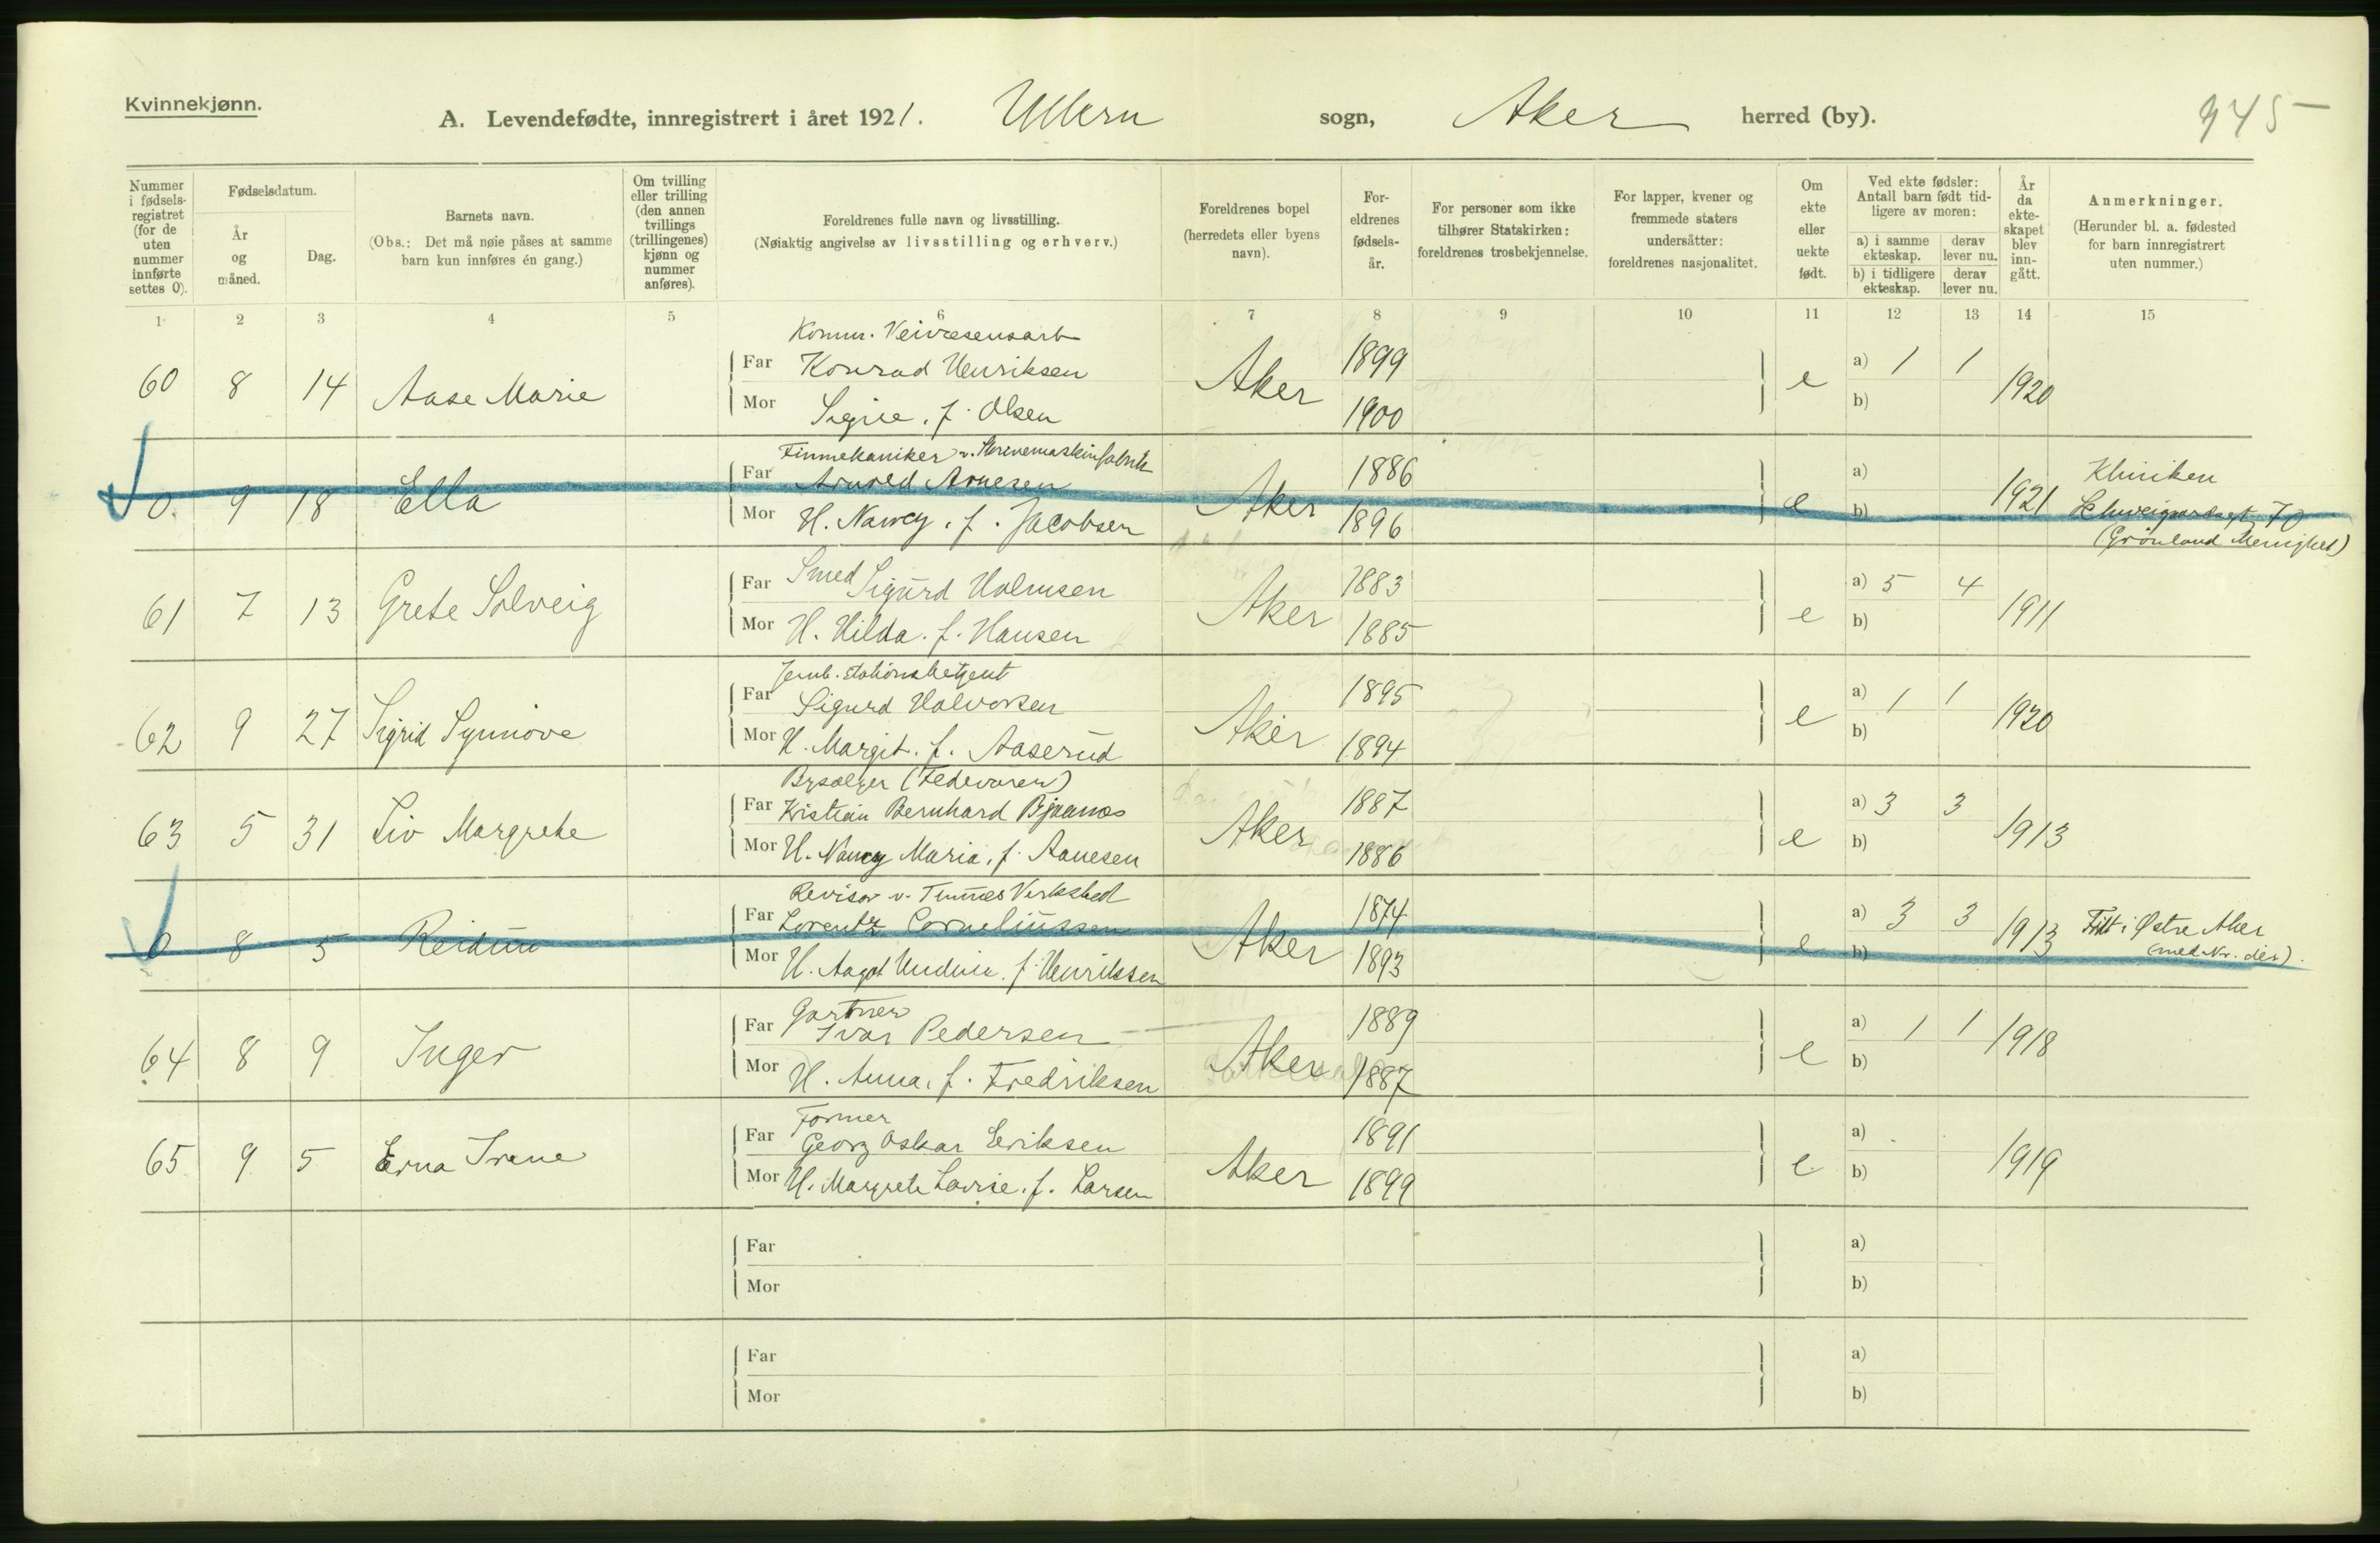 Kvinnekjønn.
A. Levendefødte, innregistrert i året 1921. Ullern sogn, Aker herred (by).
945
Nummer i fødsels-registret (for de uten nummer innførte settes 0).
Fødselsdatum.
År og måned.
Dag.
Barnets navn.
(Obs.: Det må nøie påses at samme barn kun innføres én gang.)
Om tvilling eller trilling (den annen tvillings (trillingenes) kjønn og nummer anføres).
Foreldrenes fulle navn og livsstilling.
(Nøiaktig angivelse av livsstilling og erhverv.)
Foreldrenes bopel (herredets eller byens navn).
For-eldrenes fødsels-år.
For personer som ikke tilhører Statskirken: foreldrenes trosbekjennelse.
For lapper, kvener og fremmede staters undersåtter: foreldrenes nasjonalitet.
Om ekte eller uekte født.
Ved ekte fødsler: Antall barn født tid-ligere av moren:
a) i samme ekteskap. derav lever nu.
b) i tidligere ekteskap. derav lever nu.
År da ekte-skapet blev inn-gått.
Anmerkninger.
(Herunder bl. a. fødested for barn innregistrert uten nummer.)
1 2 3 4 5 6 7 8 9 10 11 12 13 14 15
Komm. Veivæsensarb
60 8 14 Aase Marie Far Konrad Henriksen Aker 1899 e a) 1 1 1920
Mor Signe. f. Olsen 1900 b)
Finmekaniker v. Skrivemaskinfabrik
0. 9 18 Ella Far Arnold Arnesen Aker 1886 e a) 1921 Kliniken
Mor H. Nancy. f. Jacobsen 1896 b) Schweigaardsgt 70
(Grønland Menighet)
61 7 13 Grete Solveig Far Smed Sigurd Holmsen Aker 1883 e a) 5 4 1911
Mor H. Hilda. f. Hansen 1885 b)
Jernb. stationsbetjent
62 9 27 Sigrid Synnøve Far Sigurd Halvorsen Aker 1895 e a) 1 1 1920
Mor H. Margit. f. Aaserud 1894 b)
(Fedevarer)
63 5 31 Liv Margrethe Far Kristian Bernhard Bjaanæs Aker 1887 e a) 3 3 1913
Mor H. Nancy Maria, f. Aanesen 1886 b)
Revisor v. Verksted
0 8 5 Reidun Far Lorentz Corneliussen Aker 1874 e a) 3 3 1913 Født i Østre Aker
Mor H. Aagot f. Henriksen 1893 b) (med Nr. der).
Gartner
64 8 9 Inger Far Ivar Pedersen Aker 1889 e a) 1 1 1918
Mor H. Anna, f. Fredriksen 1887 b)
Former
65 9 5 Erna Irene Far Georg Oskar Eriksen Aker 1891 e a) 1919
Mor H. Margrete Lovise. f. Larsen 1899 b)
Far a)
Mor b)
Far a)
Mor b)